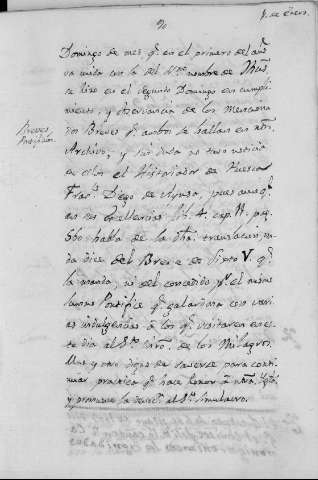 90
1.º de Enero.
Domingo de mes, q.e en el primero del año
va unida con la del SS.mo nombre de Jhūs,
se hizo en el segundo Domingo en cumpli-
miento, y observancia de los menciona
dos Breves q.e ambos se hallan en nr̃o
Archivo, y sin duda no tuvo noticia
de ellos el Historiador de Huesca
Fran.co Diego de Aynsa, pues aunq.e
en sus excellencias lib. 4. cap. pag.
560 habla de la dh̃a translacion, na
da dice del Breve de Sixto V. q.e
la manda, ni del concedido p.r el mismo
Pontifice q.e galardona con vari
as indulgencias á los q.e visitaren en es
te dia al S.to de los Milagros.
digno de saverse para conti
nuar, practica q.e hace honor á nr̃a
y promueve la devoc.n al S.to Simulacro.
Breves